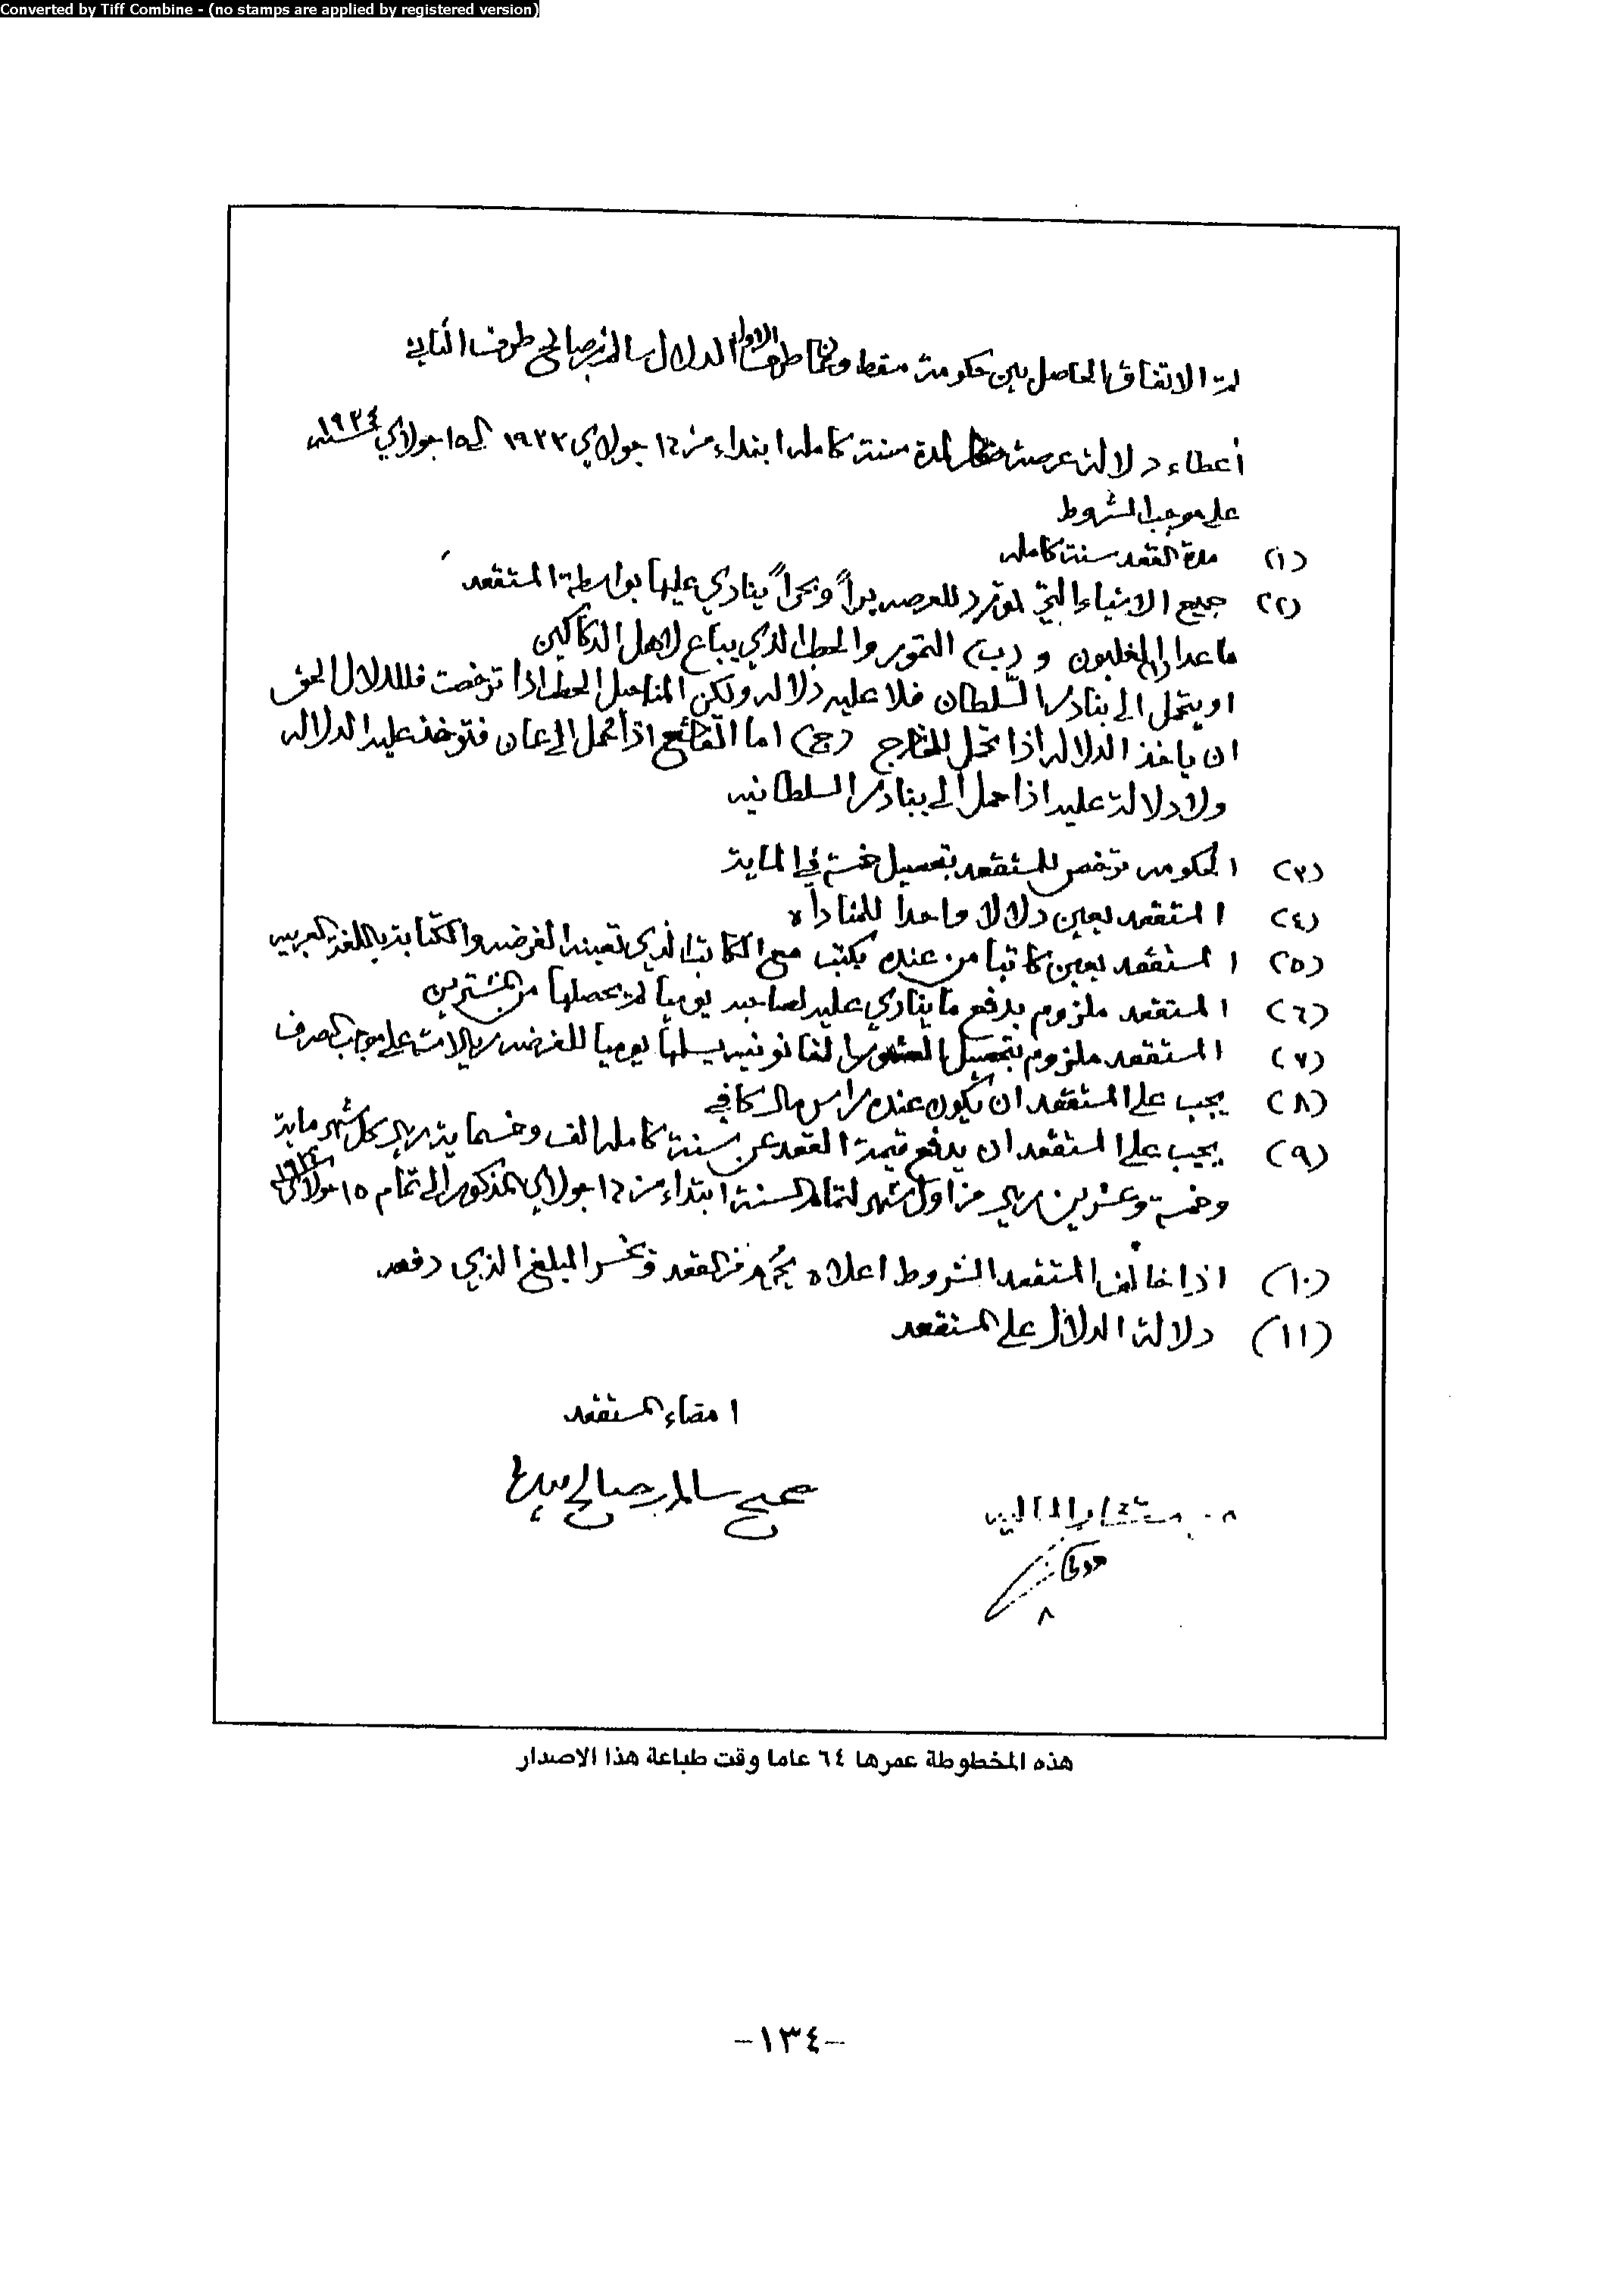 Converted by Tiff Combine - (no stamps are applied by registered version)
تم الاتفاق الحاصل بين حكومة مسقط وعمان طرف الاول الدلال سالم بن صالح طرف الثاني
أعطاء دلالة عرصة لمدة سنة كامله ابتداء من ١٦ جولاي ١٩٣٣ الى ١٥ جولاي سنة ١٩٣٤
على موجب الشروط
(١) مدة القعد سنة كامله
(٢) جميع الاشياء التي تورد للعرصه براً وبحراً ينادي عليها بواسطة المستقعد
ماعدا (ا) الغليون و (ب) التمور والحطب الذي يباع لاهل الدكاكين
او يتحمل الى بنادر السلطان فلا عليه دلاله ولكن الحطب اذا ترخصت فللدلال الحق
ان ياخذ الدلاله اذا تحمل للخارج (ج) اما اذا حمل الى عمان فتوخذ عليه الدلاله
ولا دلالة عليه اذا حمل الى بنادر السلطانيه
(٣) الحكومه ترخص للمستقعد بتحصيل خمسة في الماية
(٤) المستقعد يعين دلالا واحداً للمناداه
(٥) المستقعد يعين كاتبا من عنده يكتب مع الكاتب الذي تعينه الفرضه والكتابة باللغة العربيه
(٦) المستقعد ملزوم بدفع ما ينادي عليه لصاحبه يومياً ثم يحصلها من المشترين
(٧) المستقعد ملزوم بتحصيل العشور القانونيه يسلها يومياً للفرضه ريالات على موجب الصرف
(٨) يجب على المستقعد ان يكون عنده راس مال كافي
(٩) يجب على المستقعد ان يدفع قيمة القعد عن سنة كامله الف وخسماية ريال كل شهر ماية
وخمسة وعشرين ريال من اول شهر لتمام السنة ابتداء من ١٦ جولاي المذكور الى تمام ١٥ جولاي ١٩٣٤
(١٠) اذا خالف المستقعد الشروط اعلاه من القعد ويخسر المبلغ الذي دفعه
(١١) دلالة الدلال على المستقعد
امضاء المستقعد
صحيح سالم بن صالح بيده
مستشار المالية
هذه المخطوطة عمرها ٦٤ عاما وقت طباعة هذا الاصدار
-١٣٤-